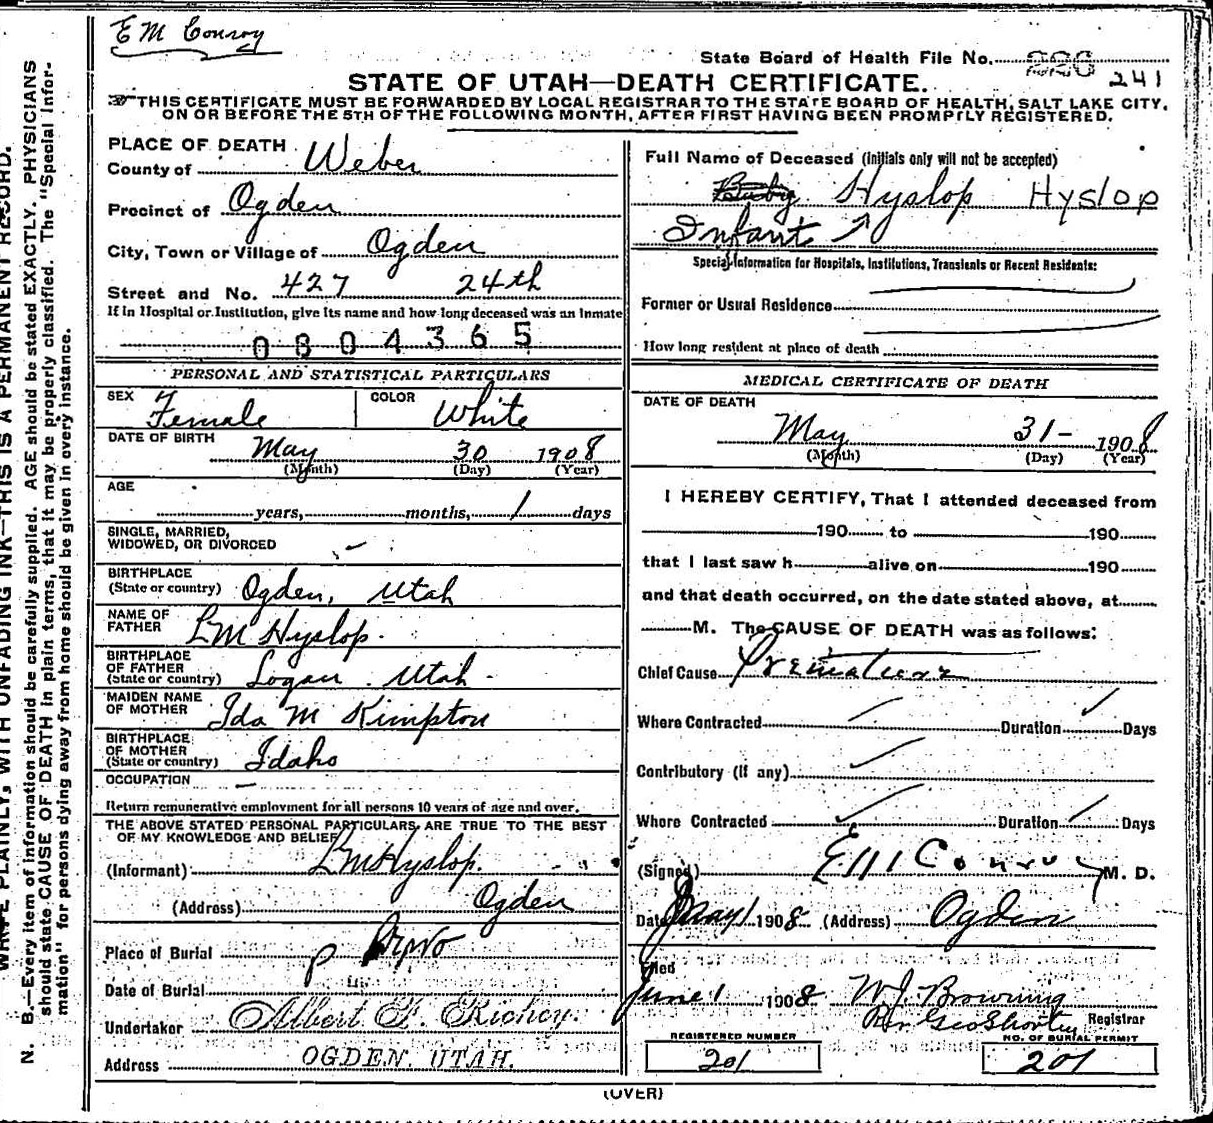 E M Conroy
State Board of Health File No. 226 241
STATE OF UTAH—DEATH CERTIFICATE.
THIS CERTIFICATE MUST BE FORWARDED BY LOCAL REGISTRAR TO THE STATE BOARD OF HEALTH, SALT LAKE CITY,
ON OR BEFORE THE 5TH OF THE FOLLOWING MONTH, AFTER FIRST HAVING BEEN PROMPTLY REGISTERED.
WRITE PLAINLY, WITH UNFADING INK—THIS IS A PERMANENT RECORD.
N. B.—Every item of information should be carefully supplied. AGE should be stated EXACTLY. PHYSICIANS
should state CAUSE OF DEATH in plain terms, that it may be properly classified. The "Special Infor-
mation" for persons dying away from home should be given in every instance.
PLACE OF DEATH
County of Weber
Precinct of Ogden
City, Town or Village of Ogden
Street and No. 427 24th
If in Hospital or Institution, give its name and how long deceased was an inmate
0804365
PERSONAL AND STATISTICAL PARTICULARS
SEX Female COLOR White
DATE OF BIRTH May 30 1908
(Month) (Day) (Year)
AGE
years, months, 1 days
SINGLE, MARRIED,
WIDOWED, OR DIVORCED
BIRTHPLACE
(State or country) Ogden, Utah
NAME OF
FATHER L M Hyslop.
BIRTHPLACE
OF FATHER
(State or country) Logan Utah
MAIDEN NAME
OF MOTHER Ida M Kimpton
BIRTHPLACE
OF MOTHER
(State or country) Idaho
OCCUPATION
Return remunerative employment for all persons 10 years of age and over.
THE ABOVE STATED PERSONAL PARTICULARS ARE TRUE TO THE BEST
OF MY KNOWLEDGE AND BELIEF
(Informant) L M Hyslop.
(Address) Ogden
Place of Burial Provo
Date of Burial
Undertaker Albert F. Richey.
Address OGDEN, UTAH.
Full Name of Deceased (initials only will not be accepted)
Baby Hyslop Hyslop
Infant
Special Information for Hospitals, Institutions, Transients or Recent Residents:
Former or Usual Residence
How long resident at place of death
MEDICAL CERTIFICATE OF DEATH
DATE OF DEATH
May 31- 1908
(Month) (Day) (Year)
I HEREBY CERTIFY, That I attended deceased from
190 to 190
that I last saw h alive on 190
and that death occurred, on the date stated above, at
M. The CAUSE OF DEATH was as follows:
Chief Cause Premature
Where Contracted Duration Days
Contributory (if any)
Where Contracted Duration Days
(Signed) E M Conroy M. D.
Date May 1 1908 (Address) Ogden
Filed
June 1 1908 W J. Browning
Registrar
REGISTERED NUMBER NO. OF BURIAL PERMIT
201 201
(OVER)